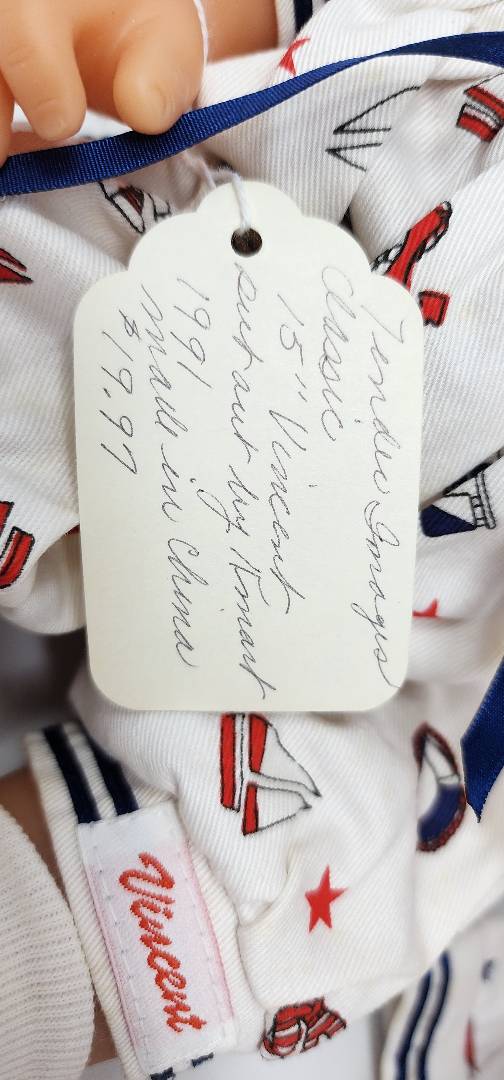 Tender Images
Classic
15" Vincent
put out by Kmart
1991
made in China
$19.97
Vincent